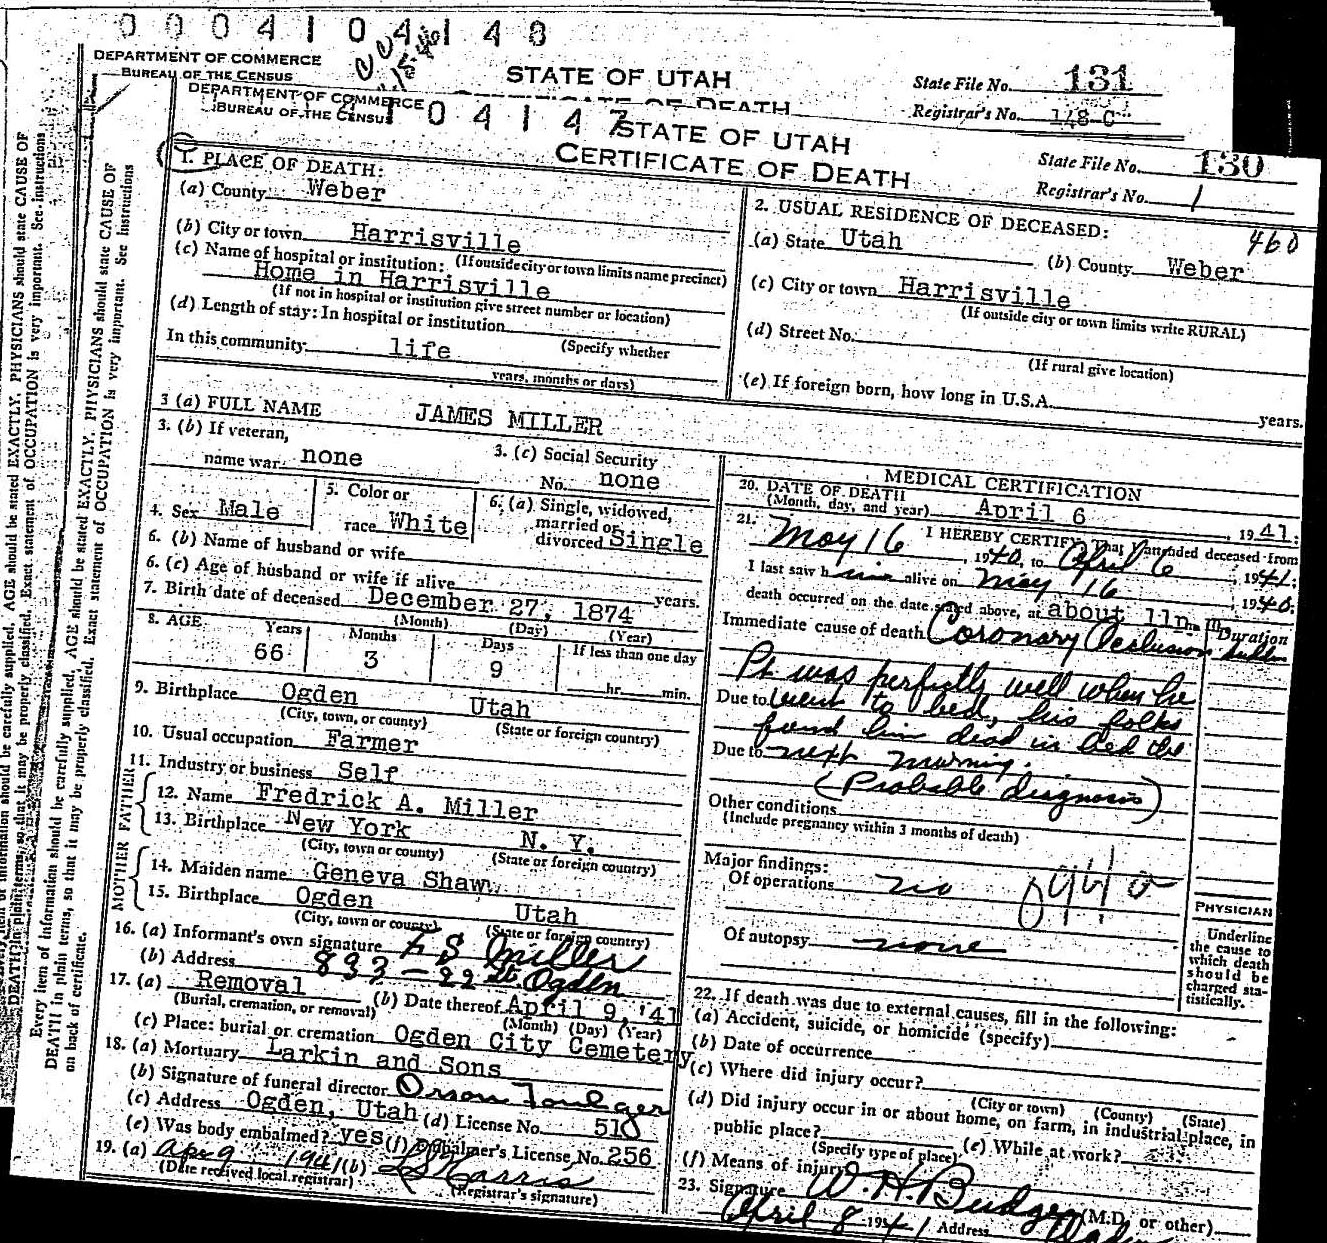 0004104148
DEPARTMENT OF COMMERCE
BUREAU OF THE CENSUS
STATE OF UTAH
CERTIFICATE OF DEATH
State File No. 131
Registrar's No. 148-C
DEPARTMENT OF COMMERCE
BUREAU OF THE CENSUS
104147
STATE OF UTAH
CERTIFICATE OF DEATH
State File No. 130
Registrar's No. 1
460
1. PLACE OF DEATH:
(a) County Weber
(b) City or town Harrisville
(If outside city or town limits name precinct)
(c) Name of hospital or institution:
Home in Harrisville
(If not in hospital or institution give street number or location)
(d) Length of stay: In hospital or institution
(Specify whether
In this community life
years, months or days)
2. USUAL RESIDENCE OF DECEASED:
(a) State Utah (b) County Weber
(c) City or town Harrisville
(If outside city or town limits write RURAL)
(d) Street No.
(If rural give location)
(e) If foreign born, how long in U.S.A. years.
3 (a) FULL NAME JAMES MILLER
3. (b) If veteran,
name war none
3. (c) Social Security
No. none
4. Sex Male
5. Color or
race White
6. (a) Single, widowed,
married or
divorced Single
6. (b) Name of husband or wife
6. (c) Age of husband or wife if alive years.
7. Birth date of deceased December 27, 1874
(Month) (Day) (Year)
8. AGE Years Months Days If less than one day
66 3 9 hr. min.
9. Birthplace Ogden Utah
(City, town, or county) (State or foreign country)
10. Usual occupation Farmer
11. Industry or business Self
FATHER
12. Name Fredrick A. Miller
13. Birthplace New York N. Y.
(City, town or county) (State or foreign country)
MOTHER
14. Maiden name Geneva Shaw
15. Birthplace Ogden Utah
(City, town or county) (State or foreign country)
16. (a) Informant's own signature Miller
(b) Address 833 - 22 St. Ogden
17. (a) Removal (b) Date thereof April 9, '41
(Burial, cremation, or removal) (Month) (Day) (Year)
(c) Place: burial or cremation Ogden City Cemetery
18. (a) Mortuary Larkin and Sons
(b) Signature of funeral director Orson Foulger
(c) Address Ogden, Utah (d) License No. 510
(e) Was body embalmed? yes (f) Embalmer's License No. 256
19. (a) Apr 9 1941 (b) Harris
(Date received local registrar) (Registrar's signature)
MEDICAL CERTIFICATION
20. DATE OF DEATH
(Month, day, and year) April 6 1941.
21. I HEREBY CERTIFY, That I attended deceased from
May 16, 1940, to April 6, 1941.
I last saw him alive on May 16, 1940.
death occurred on the date stated above, at about 11 m.
Duration
Immediate cause of death Coronary Occlusion
Pt was perfectly well when he
Due to went to bed, his folks
found him dead in bed the
Due to next morning.
(Probable diagnosis)
Other conditions
(Include pregnancy within 3 months of death)
Major findings:
Of operations no 094a
Of autopsy none
PHYSICIAN
Underline
the cause to
which death
should be
charged sta-
tistically.
22. If death was due to external causes, fill in the following:
(a) Accident, suicide, or homicide (specify)
(b) Date of occurrence
(c) Where did injury occur?
(City or town) (County) (State)
(d) Did injury occur in or about home, on farm, in industrial place, in
public place?
(Specify type of place)
(e) While at work?
(f) Means of injury
23. Signature W. H. Budge (M.D. or other)
April 8 1941 Address
Every item of information should be carefully supplied. AGE should be stated EXACTLY. PHYSICIANS should state CAUSE OF
DEATH in plain terms, so that it may be properly classified. Exact statement of OCCUPATION is very important. See instructions
on back of certificate.
information should be carefully supplied. AGE should be stated EXACTLY. PHYSICIANS should state CAUSE OF
DEATH in plain terms, so that it may be properly classified. Exact statement of OCCUPATION is very important. See instructions